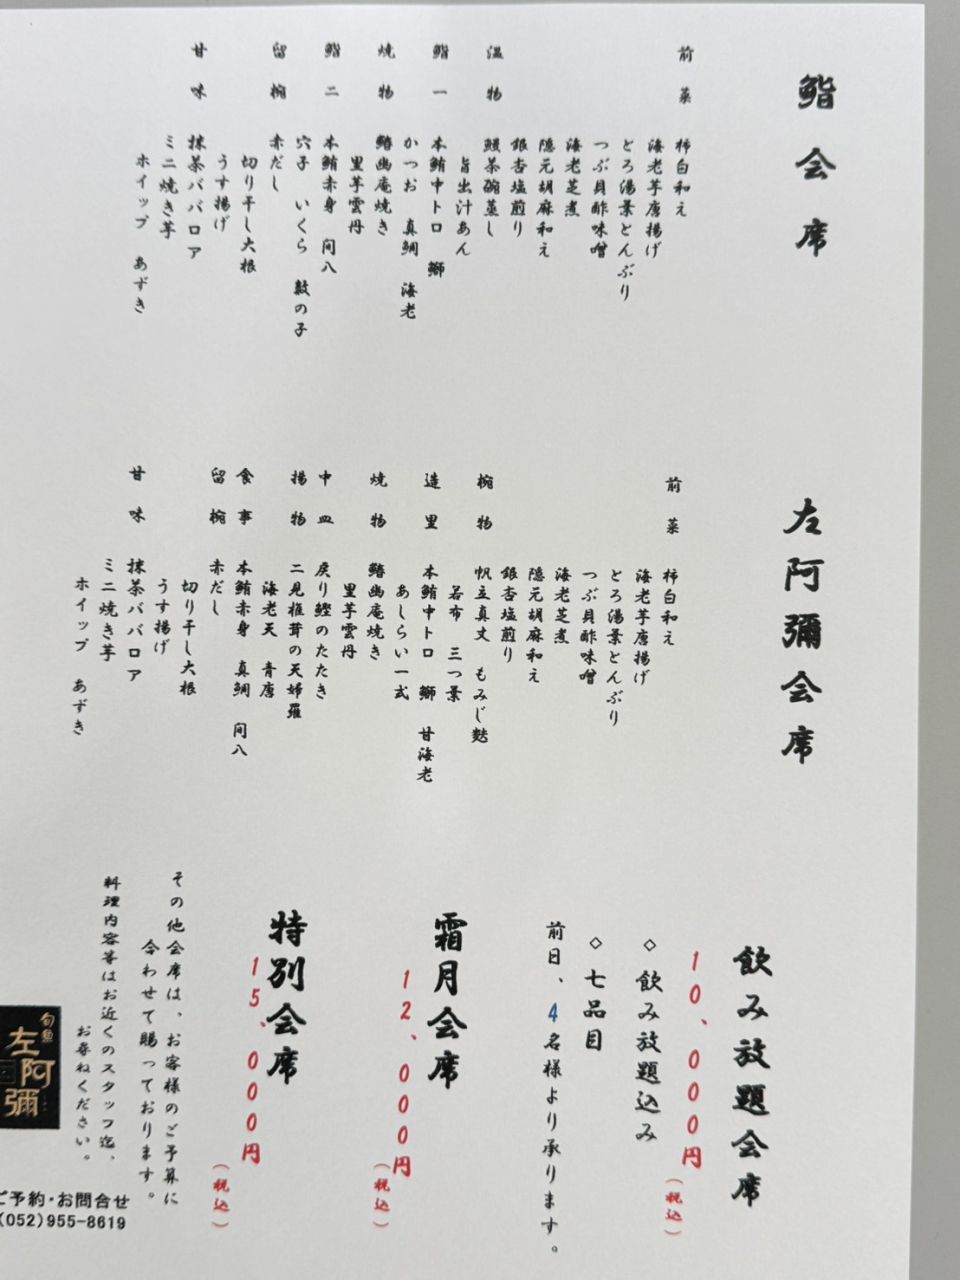 鮨会席
前菜
柿白和え
海老芋唐揚げ
とろ湯葉どんぶり
つぶ貝酢味噌
海老芝煮
隠元胡麻和え
銀杏塩煎り
温物
鰻茶碗蒸し
旨出汁あん
鮨一
本鮪中トロ 鰤
かつお 真鯛 海老
焼物
鰆幽庵焼き
里芋雲丹
鮨二
本鮪赤身 間八
穴子 いくら 数の子
留椀
赤だし
切り干し大根
うす揚げ
甘味
抹茶ババロア
ミニ焼き芋
ホイップ あずき
左阿彌会席
前菜
柿白和え
海老芋唐揚げ
とろ湯葉どんぶり
つぶ貝酢味噌
海老芝煮
隠元胡麻和え
銀杏塩煎り
椀物
帆立真丈 もみじ麩
若布 三つ葉
造里
本鮪中トロ 鰤 甘海老
あしらい一式
焼物
鰆幽庵焼き
里芋雲丹
中皿
戻り鰹のたたき
揚物
二見椎茸の天婦羅
海老天 青唐
食事
本鮪赤身 真鯛 間八
留椀
赤だし
切り干し大根
うす揚げ
甘味
抹茶ババロア
ミニ焼き芋
ホイップ あずき
飲み放題会席
10、000円
(税込)
◇飲み放題込み
◇七品目
前日、4名様より承ります。
霜月会席
12、000円
(税込)
特別会席
15、000円
(税込)
その他会席は、お客様のご予算に
合わせて賜っております。
料理内容等はお近くのスタッフ迄、
お尋ねください。
旬魚
左阿彌
ご予約・お問合せ
(052)955-8619